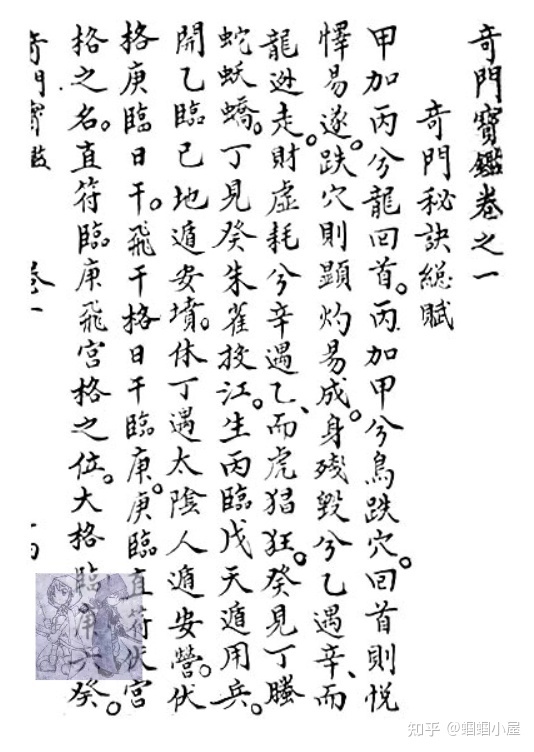 奇門寶鑑卷之一
奇門秘訣総賦
甲加丙兮龍回首。丙加甲兮鳥跌穴。回首則悅
懌易遂。跌穴則顯灼易成。身殘毀兮乙遇辛、而
龍迯走。財虛耗兮辛遇乙、而虎猖狂。癸見丁螣
蛇妖蟜。丁見癸朱雀投江。生丙臨戊天遁用兵。
開乙臨己地遁安墳。休丁遇太陰人遁安營。伏
格庚臨日干。飛干格日干臨庚。庚臨直符伏宮
格之名。直符臨庚飛宮格之位。大格臨庚六癸。
奇門寶鑑 卷一
知乎 @蝈蝈小屋